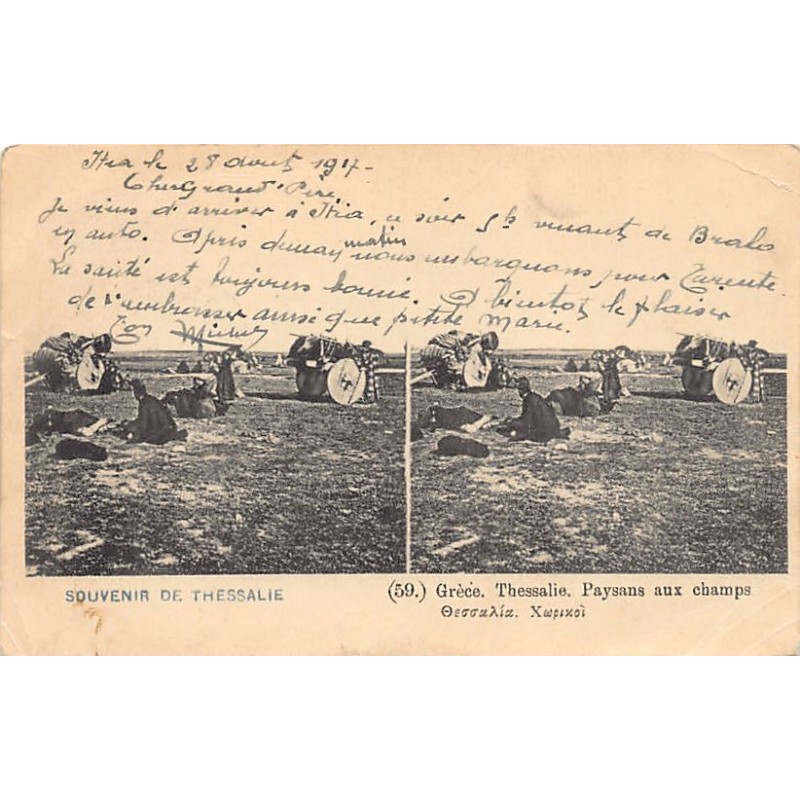 Itea le 28 aout 1917-
Cher Grand'Père,
Je viens d'arriver à Itéa, ce soir 5h venant de Bralo
en auto. Après demain matin nous embarquons pour Tarente.
La santé est toujours bonne. A bientot le plaisir
de t'embrasser ainsi que petite Marie.
Ton
SOUVENIR DE THESSALIE
(59.) Grèce. Thessalie. Paysans aux champs
Θεσσαλία. Χωρικοὶ